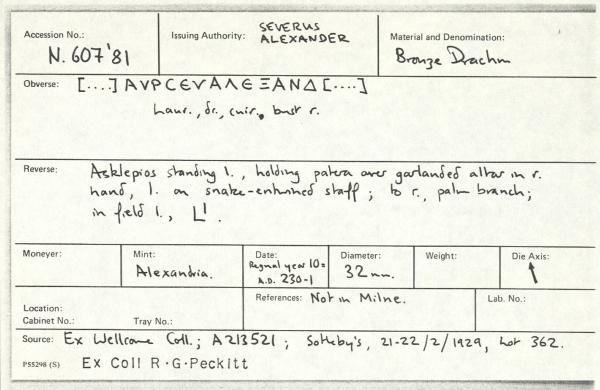 Accession No.: N.607'81
Issuing Authority: SEVERUS
ALEXANDER
Material and Denomination:
Bronze Drachm
Obverse: [....] ΑVΡϹЄVΑΛЄΞΑΝΔ [....]
Laur., dr., cuir., bust r.
Reverse: Asklepios standing l., holding patera over garlanded altar in r.
hand, l. on snake-entwined staff; to r., palm branch;
in field l., LI.
Moneyer:
Mint:
Alexandria.
Date:
Regnal year 10 =
A.D. 230-1
Diameter:
32 mm.
Weight:
Die Axis:
↖
Location:
Cabinet No.: Tray No.:
References: Not in Milne.
Lab. No.:
Source: Ex Wellcome Coll.; A213521; Sotheby's, 21-22/2/1929, Lot 362.
P55298 (S) Ex Coll R.G.Peckitt